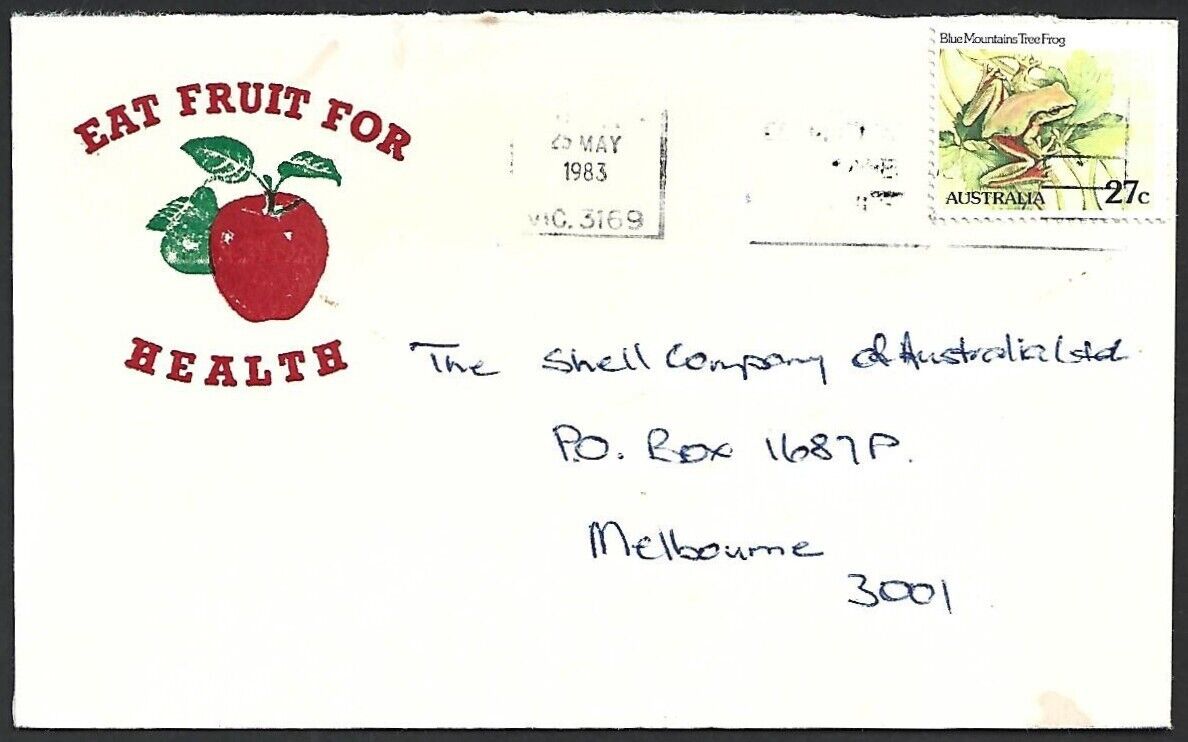 EAT FRUIT FOR
HEALTH
MAY
1983
VIC. 3169
Blue Mountains Tree Frog
AUSTRALIA 27c
The Shell Company of Australia Ltd
P.O. Box 1687P.
Melbourne
3001